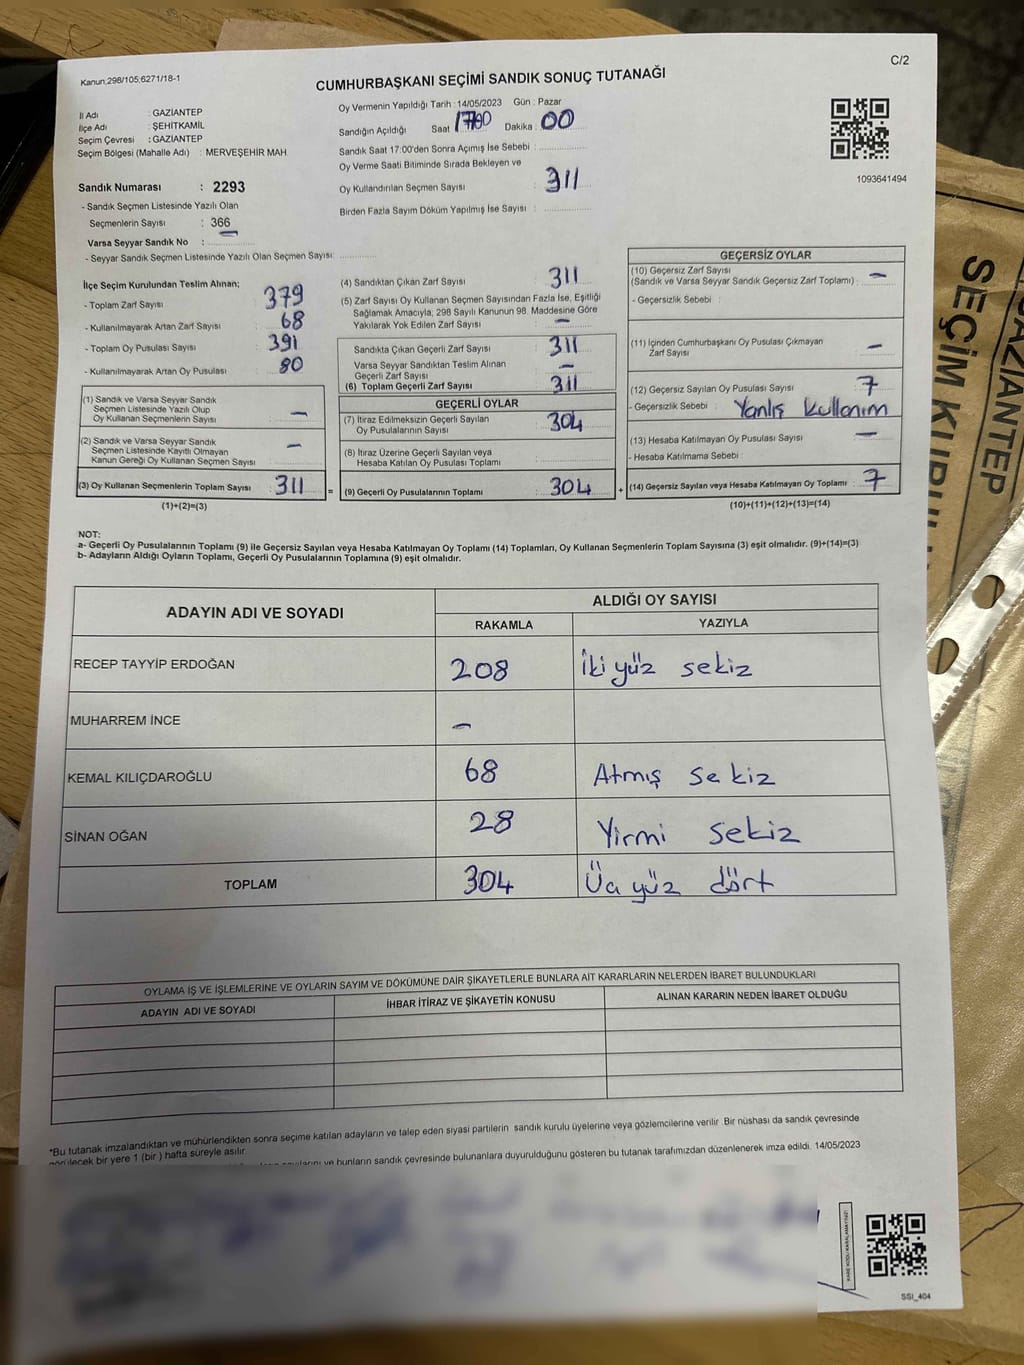 C/2
Kanun,298/105;6271/18-1
CUMHURBAŞKANI SEÇİMİ SANDIK SONUÇ TUTANAĞI
İl Adı : GAZİANTEP
İlçe Adı : ŞEHİTKAMİL
Seçim Çevresi : GAZİANTEP
Seçim Bölgesi (Mahalle Adı) : MERVEŞEHİR MAH.
Oy Vermenin Yapıldığı Tarih : 14/05/2023 Gün : Pazar
Sandığın Açıldığı Saat 1700 Dakika : 00
Sandık Saat 17:00'den Sonra Açımış İse Sebebi :
Oy Verme Saati Bitiminde Sırada Bekleyen ve
Oy Kullandırılan Seçmen Sayısı : 311
Birden Fazla Sayım Döküm Yapılmış İse Sayısı :
1093641494
Sandık Numarası : 2293
- Sandık Seçmen Listesinde Yazılı Olan
Seçmenlerin Sayısı : 366
Varsa Seyyar Sandık No :
- Seyyar Sandık Seçmen Listesinde Yazılı Olan Seçmen Sayısı:
İlçe Seçim Kurulundan Teslim Alınan;
- Toplam Zarf Sayısı : 379
- Kullanılmayarak Artan Zarf Sayısı : 68
- Toplam Oy Pusulası Sayısı : 391
- Kullanılmayarak Artan Oy Pusulası : 80
(1) Sandık ve Varsa Seyyar Sandık
Seçmen Listesinde Yazılı Olup
Oy Kullanan Seçmenlerin Sayısı : –
(2) Sandık ve Varsa Seyyar Sandık
Seçmen Listesinde Kayıtlı Olmayan
Kanun Gereği Oy Kullanan Seçmen Sayısı : –
(3) Oy Kullanan Seçmenlerin Toplam Sayısı : 311
(1)+(2)=(3)
(4) Sandıktan Çıkan Zarf Sayısı : 311
(5) Zarf Sayısı Oy Kullanan Seçmen Sayısından Fazla İse, Eşitliği
Sağlamak Amacıyla; 298 Sayılı Kanunun 98. Maddesine Göre
Yakılarak Yok Edilen Zarf Sayısı : –
Sandıkta Çıkan Geçerli Zarf Sayısı : 311
Varsa Seyyar Sandıktan Teslim Alınan
Geçerli Zarf Sayısı : –
(6) Toplam Geçerli Zarf Sayısı : 311
GEÇERLİ OYLAR
(7) İtiraz Edilmeksizin Geçerli Sayılan
Oy Pusulalarının Sayısı : 304
(8) İtiraz Üzerine Geçerli Sayılan veya
Hesaba Katılan Oy Pusulası Toplamı :
= (9) Geçerli Oy Pusulalarının Toplamı : 304
GEÇERSİZ OYLAR
(10) Geçersiz Zarf Sayısı
(Sandık ve Varsa Seyyar Sandık Geçersiz Zarf Toplamı) : –
- Geçersizlik Sebebi :
(11) İçinden Cumhurbaşkanı Oy Pusulası Çıkmayan
Zarf Sayısı : –
(12) Geçersiz Sayılan Oy Pusulası Sayısı : 7
- Geçersizlik Sebebi : Yanlış kullanım
(13) Hesaba Katılmayan Oy Pusulası Sayısı : –
- Hesaba Katılmama Sebebi :
+ (14) Geçersiz Sayılan veya Hesaba Katılmayan Oy Toplamı : 7
(10)+(11)+(12)+(13)=(14)
NOT:
a- Geçerli Oy Pusulalarının Toplamı (9) ile Geçersiz Sayılan veya Hesaba Katılmayan Oy Toplamı (14) Toplamları, Oy Kullanan Seçmenlerin Toplam Sayısına (3) eşit olmalıdır. (9)+(14)=(3)
b- Adayların Aldığı Oyların Toplamı, Geçerli Oy Pusulalarının Toplamına (9) eşit olmalıdır.
ADAYIN ADI VE SOYADI
ALDIĞI OY SAYISI
RAKAMLA YAZIYLA
RECEP TAYYİP ERDOĞAN 208 İki yüz sekiz
MUHARREM İNCE –
KEMAL KILIÇDAROĞLU 68 Atmış sekiz
SİNAN OĞAN 28 Yirmi sekiz
TOPLAM 304 Üç yüz dört
OYLAMA İŞ VE İŞLEMLERİNE VE OYLARIN SAYIM VE DÖKÜMÜNE DAİR ŞİKAYETLERLE BUNLARA AİT KARARLARIN NELERDEN İBARET BULUNDUKLARI
ADAYIN ADI VE SOYADI İHBAR İTİRAZ VE ŞİKAYETİN KONUSU ALINAN KARARIN NEDEN İBARET OLDUĞU
*Bu tutanak imzalandıktan ve mühürlendikten sonra seçime katılan adayların ve talep eden siyasi partilerin sandık kurulu üyelerine veya gözlemcilerine verilir. Bir nüshası da sandık çevresinde
görülecek bir yere 1 (bir ) hafta süreyle asılır.
ve bunların sandık çevresinde bulunanlara duyurulduğunu gösteren bu tutanak tarafımızdan düzenlenerek imza edildi. 14/05/2023
SSI_404
GAZİANTEP
SEÇİM KURUL